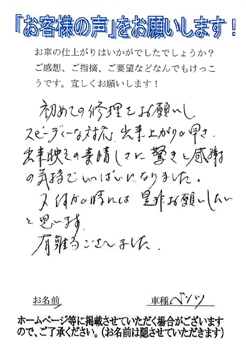 『お客様の声』をお願いします！
お車の仕上がりはいかがでしたでしょうか？
ご感想、ご指摘、ご要望などなんでもけっこ
うです。宜しくお願いします！
初めての修理をお願いし
スピーディーな対応、出来上がりの早さ、
出来映えの素晴しさに驚きと感謝
の気持でいっぱいになりました。
又何かの時には是非お願いしたい
と思います。
有難うございました。
お名前
車種 ベンツ
ホームページ等に掲載させていただく場合がございます
ので、ご了承ください。（お名前は隠させていただきます）